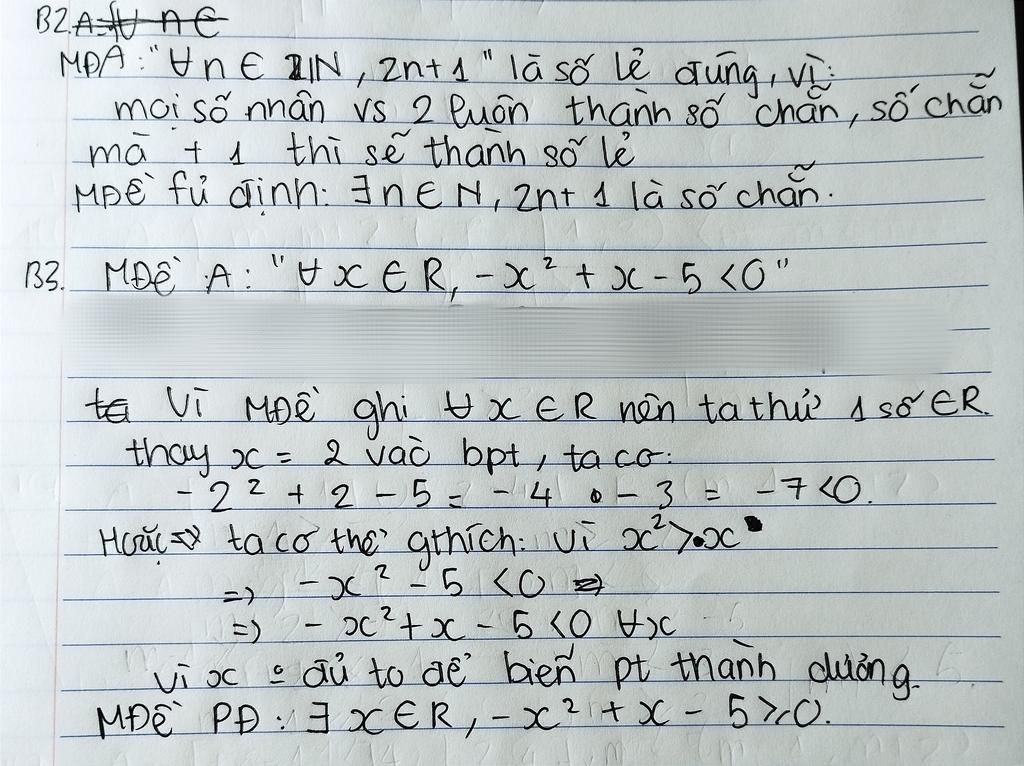 B2. A: ∀ n ∈
MĐA: "∀n ∈ IN, 2n+1" là số lẻ đúng, vì:
mọi số nhân vs 2 luôn thành số chẵn, số chẵn
mà + 1 thì sẽ thành số lẻ
MĐề fủ định: ∃n ∈ N, 2n+ 1 là số chẵn.
B3. MĐề A: "∀ x ∈ R, -x² + x - 5 <0"
ta Vì MĐề ghi ∀ x ∈ R nên ta thử 1 số ∈ R.
thay x = 2 vào bpt, ta có:
-2² + 2 - 5 = - 4 - 3 = -7 <0.
Hoặc => ta có thể gthích: vì x² > x
=> -x² - 5 <0 =>
=> - x² + x - 5 <0 ∀x
vì x đủ to để biến pt thành dương.
MĐề PĐ: ∃ x ∈ R, -x² + x - 5 ≥ 0.